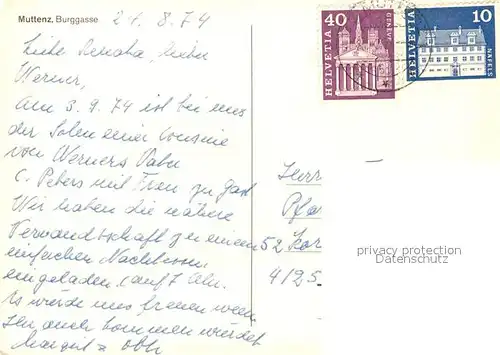 Muttenz, Burggasse
21.8.74
Liebe lieber
Werner,
Am 3.9.74 ist bei uns
der Sohn einer Cousine
von Werners Vater
C. Peters mit Frau zu Gast
Wir haben die nähere
Verwandtschaft zu einem
einfachen Nachtessen
eingeladen (auf 7 Uhr.
Es würde uns freuen wenn
Ihr auch kommen würdet
HELVETIA
40
GENÈVE
HELVETIA
10
NÄFELS
Herr
Pfa
52
privacy protection
Datenschutz